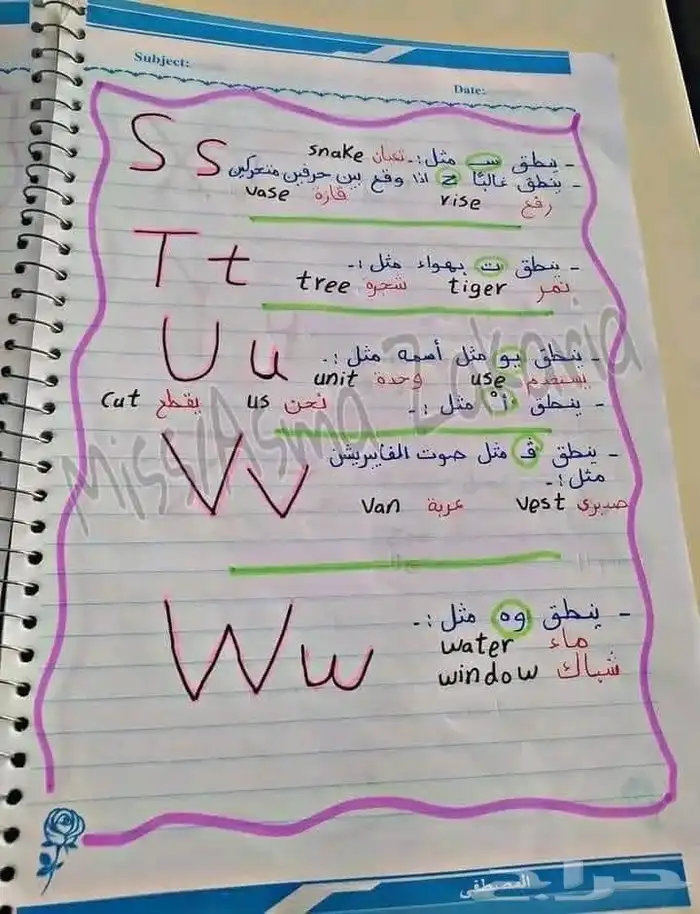 Subject:
Date:
S s
- ينطق س مثل :- ثعبان snake
- ينطق غالبًا z اذا وقع بين حرفين متحركين
رفع rise فازة vase
T t
- ينطق ت بهواء مثل :-
نمر tiger شجرة tree
U u
- ينطق يو مثل أسمه مثل :-
يستخدم use وحدة unit
- ينطق أَ مثل :- نحن us يقطع cut
V v
- ينطق ڤ مثل صوت الفايبريشن
مثل :-
صديري vest عربة van
W w
- ينطق وه مثل :-
ماء water
شباك window
Miss/Asma Zakaria
المصطفى
حراج